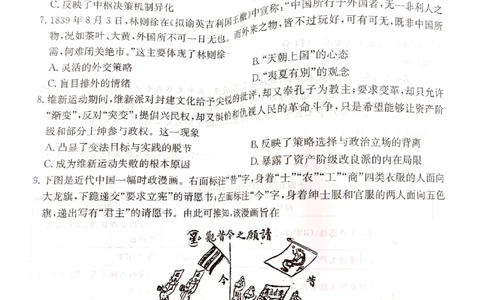 C.反映了中枢决策机制异化
7.1839年8月3日,林则徐在《拟谕英吉利国王檄》中宣称:“中国所行于外国者,无一非利人之
物,况如茶叶、大黄,外国所不可一日无也。而外来之物,皆不过玩好,可有可无,既非中国所
需,何难闭关绝市。”这主要体现了林则徐
A.灵活的外交策略
B.“天朝上国”的心态
C.盲目排外的情绪
D.“夷夏有别”的观念
8.维新运动期间,维新派对封建文化给予尖锐的批评,却又奉孔子为教主;要求变革,却只允许
“渐变”,反对“突变”;提倡兴民权,却又惧怕和仇视人民的革命斗争,只是希望能够让资产阶
级和部分士绅参与政权。这一现象
A.凸显了变法目标与实践的脱节
B.反映了策略选择与政治立场的背离
C.成为维新运动失败的根本原因
D.暴露了资产阶级改良派的内在局限
9.下图是近代中国一幅时政漫画。右面标注“昔”字,身着“士”“农”“工”“商”四类衣服的人面向
大龙旗,下跪递交“要求立宪”的请愿书;左面标注“今”字,身着绅士服和官服的两人面向五色
旗,递出写有“君主”的请愿书。由此可推知,该漫画旨在
觀昔今之願請
今
昔